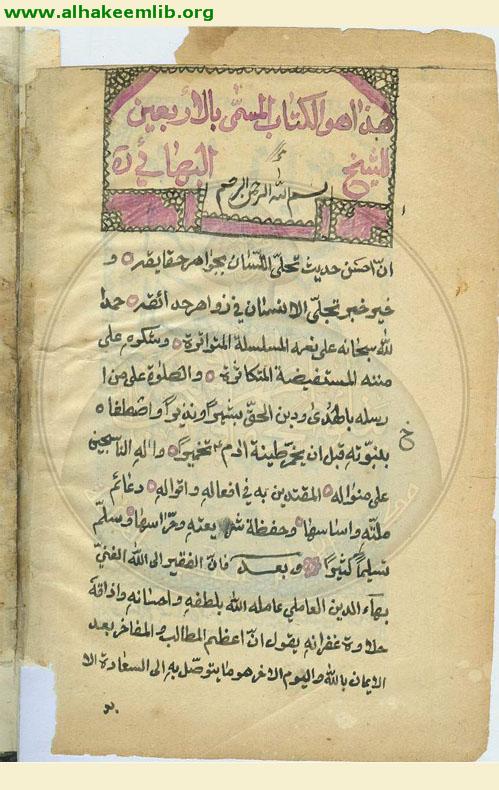 www.alhakeemlib.org
هذا هو الكتاب المسمى بالأربعين
للشيخ البهائي ره
بسم الله الرحمن الرحيم
ان احسن حديث تحلى اللسان بجواهر حقايقه و
خير خبر تجلى الانسان في زواهر حدائقه حمدا
لله سبحانه على نعمه المسلسلة المتواترة وشكره على
مننه المستفيضة المتكاثرة والصلوة على من ا
رسله بالهدى ودين الحق بشيراً ونذيراً واصطفا
خ
بنبوته قبل ان يخمر طينة آدم تخميراً واله الناسجين
على منواله المقتدين به في افعاله واقواله دعائم
ملته واساسها وحفظة شريعته وحراسها وسلم
تسليماً كثيراً وبعد فان الفقير الى الله الغني
بهاء الدين العاملي عامله الله بلطفه واحسانه واذاقه
حلاوة غفرانه يقول ان اعظم المطالب والمفاخر بعد
الايمان بالله واليوم الاخر هو ما يتوصل به الى السعادة الا